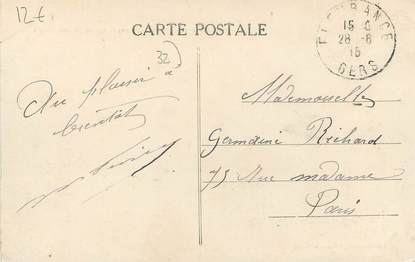 12€
CARTE POSTALE
32
15 - 6
28 - 8
15
GERS
Au plaisir à
bientôt
Mademoiselle
Germaine Richard
75 Rue madame
Paris